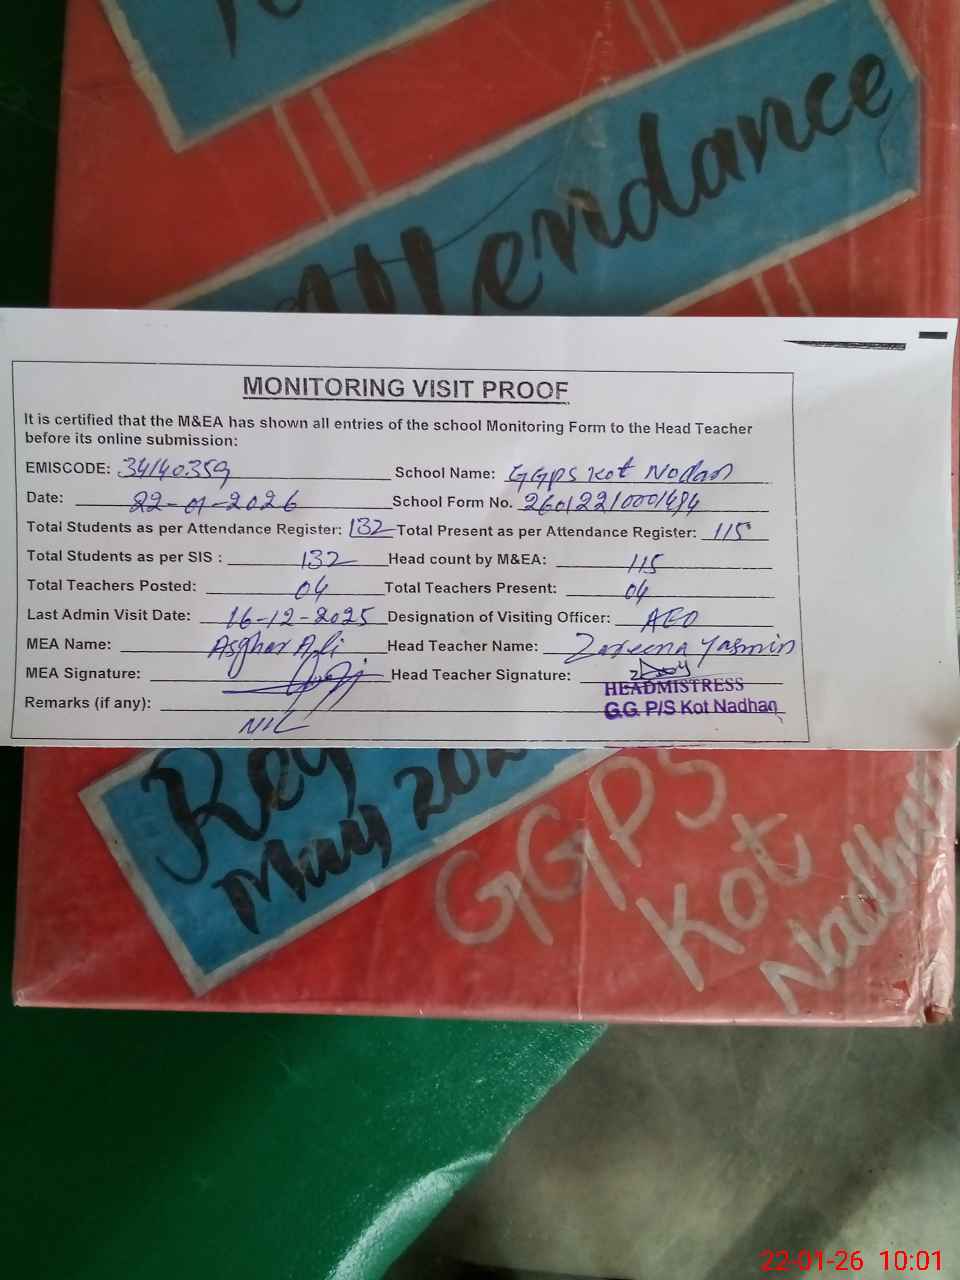 Attendance
MONITORING VISIT PROOF
It is certified that the M&EA has shown all entries of the school Monitoring Form to the Head Teacher
before its online submission:
EMISCODE: 34140359 School Name: GGPS Kot Nodan
Date: 22-01-2026 School Form No. 26012210001484
Total Students as per Attendance Register: 132 Total Present as per Attendance Register: 115
Total Students as per SIS : 132 Head count by M&EA: 115
Total Teachers Posted: 04 Total Teachers Present: 04
Last Admin Visit Date: 16-12-2025 Designation of Visiting Officer: AEO
MEA Name: Asghar Ali Head Teacher Name: Zareena Yasmin
MEA Signature: Head Teacher Signature:
HEADMISTRESS
Remarks (if any): NIL G.G. P/S Kot Nadhan
May
GGPS
Kot
Nadhan
22-01-26 10:01